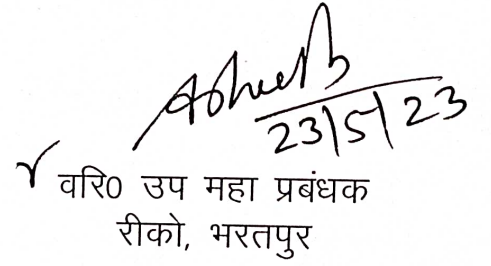 23/5/23
वरि0 उप महा प्रबंधक
रीको, भरतपुर